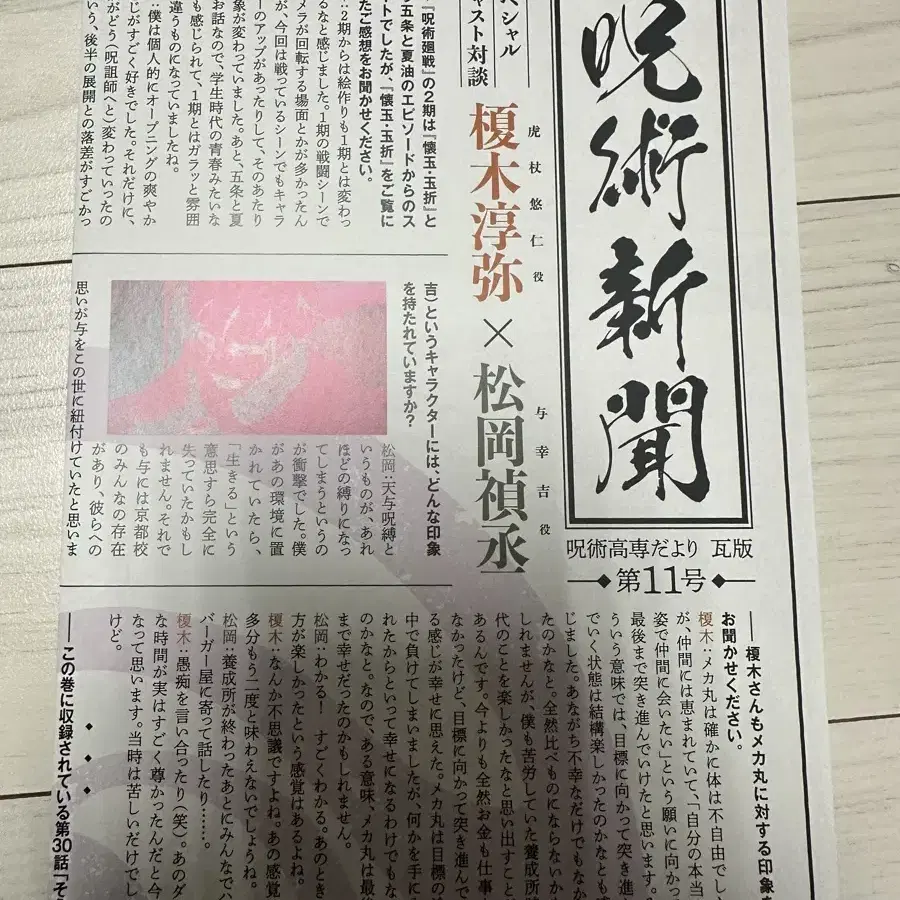 呪術新聞
呪術高専だより 瓦版
第11号
ペシャル
ャスト対談
虎杖悠仁役
榎木淳弥
×
与幸吉役
松岡禎丞
『呪術廻戦』の2期は『懐玉・玉折』と
う五条と夏油のエピソードからのス
ートでしたが、『懐玉・玉折』をご覧に
たご感想をお聞かせください。
:2期からは絵作りも1期とは変わっ
るなと感じました。1期の戦闘シーンで
メラが回転する場面とかが多かったん
が、今回は戦っているシーンでもキャラ
ーのアップがあったりして、そのあたり
象が変わっていました。あと、五条と夏
お話なので、学生時代の青春みたいな
も感じられて、1期とはガラッと雰囲
違うものになっていましたね。
:僕は個人的にオープニングの爽やか
じがすごく好きでした。それだけに、
がどう(呪詛師へと)変わっていったの
いう、後半の展開との落差がすごかっ
吉)というキャラクターには、どんな印象
を持たれていますか?
松岡:天与呪縛と
いうものが、あれ
ほどの縛りになっ
てしまうというの
が衝撃でした。僕
があの環境に置
かれていたら、
「生きる」という
意思すら完全に
失っていたかもし
れません。それで
も与には京都校
のみんなの存在
があり、彼らへの
思いが与をこの世に紐付けていたと思いま
――榎木さんもメカ丸に対する印象
お聞かせください。
榎木:メカ丸は確かに体は不自由でし
が、仲間には恵まれていて、「自分の本当
姿で仲間に会いたい」という願いに向かっ
最後まで突き進んでいけたと思います。
ういう意味では、目標に向かって突き進
でいく状態は結構楽しかったのかなとも感
じました。あながち不幸なだけでもなか
たのかなと。全然比べものにならないか
しれませんが、僕も苦労していた養成所
代のことを楽しかったなと思い出すこと
あるんです。今よりも全然お金も仕事
なかったけど、目標に向かって突き進ん
る感じが幸せに思えた。メカ丸は目標の
中で負けてしまいましたが、何かを手に
れたからといって幸せになるわけでもな
のかなと。なので、ある意味、メカ丸は最後
まで幸せだったのかもしれません。
松岡:わかる! すごくわかる。あのとき
方が楽しかったという感覚はあるよね。
榎木:なんか不思議ですよね。あの感覚
多分もう二度と味わえないでしょうね。
松岡:養成所が終わったあとにみんなでハ
バーガー屋に寄って話したり……。
榎木:愚痴を言い合ったり(笑)。あのダ
な時間が実はすごく尊かったんだと今
なって思います。当時は苦しいだけでし
けど。
◆ ◆ ◆
――この巻に収録されている第30話「そ